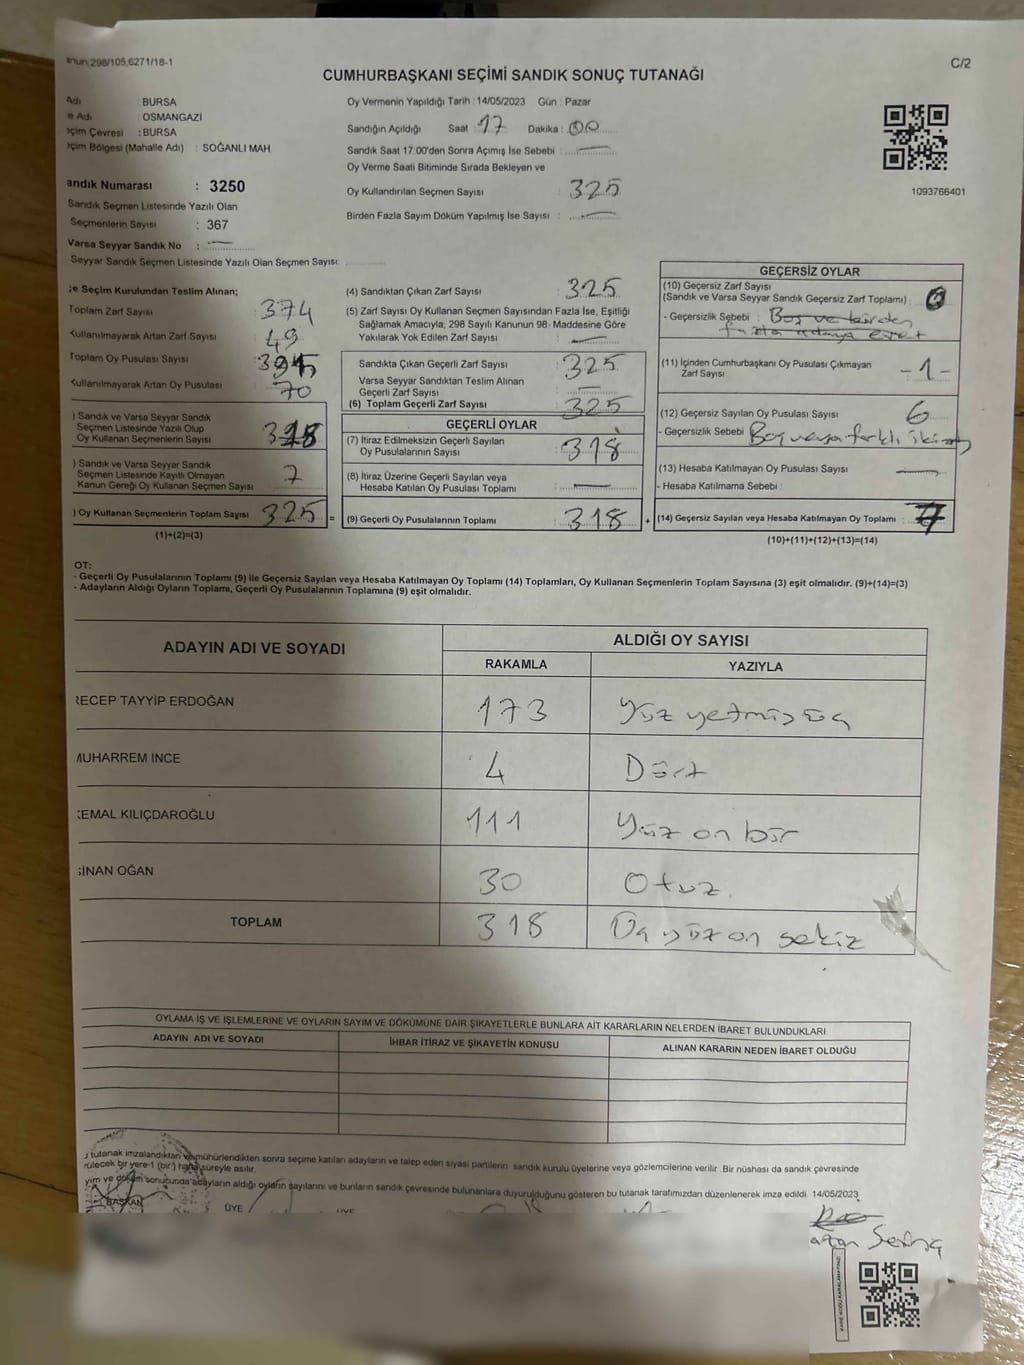 nun;298/105,6271/18-1
C/2
CUMHURBAŞKANI SEÇİMİ SANDIK SONUÇ TUTANAĞI
Adı : BURSA
e Adı : OSMANGAZİ
çim Çevresi : BURSA
çim Bölgesi (Mahalle Adı) : SOĞANLI MAH.
andık Numarası : 3250
Sandık Seçmen Listesinde Yazılı Olan
Seçmenlerin Sayısı : 367
Varsa Seyyar Sandık No : —
Seyyar Sandık Seçmen Listesinde Yazılı Olan Seçmen Sayısı:
Oy Vermenin Yapıldığı Tarih : 14/05/2023 Gün : Pazar
Sandığın Açıldığı Saat : 17 Dakika : 00
Sandık Saat 17:00'den Sonra Açımış İse Sebebi : —
Oy Verme Saati Bitiminde Sırada Bekleyen ve
Oy Kullandırılan Seçmen Sayısı 325
Birden Fazla Sayım Döküm Yapılmış İse Sayısı : —
1093766401
çe Seçim Kurulundan Teslim Alınan;
Toplam Zarf Sayısı : 374
Kullanılmayarak Artan Zarf Sayısı : 49
Toplam Oy Pusulası Sayısı
Kullanılmayarak Artan Oy Pusulası 70
) Sandık ve Varsa Seyyar Sandık
Seçmen Listesinde Yazılı Olup
Oy Kullanan Seçmenlerin Sayısı : 318
) Sandık ve Varsa Seyyar Sandık
Seçmen Listesinde Kayıtlı Olmayan
Kanun Gereği Oy Kullanan Seçmen Sayısı 7
) Oy Kullanan Seçmenlerin Toplam Sayısı 325 =
(1)+(2)=(3)
(4) Sandıktan Çıkan Zarf Sayısı : 325
(5) Zarf Sayısı Oy Kullanan Seçmen Sayısından Fazla İse, Eşitliği
Sağlamak Amacıyla, 298 Sayılı Kanunun 98. Maddesine Göre
Yakılarak Yok Edilen Zarf Sayısı : —
Sandıkta Çıkan Geçerli Zarf Sayısı : 325
Varsa Seyyar Sandıktan Teslim Alınan
Geçerli Zarf Sayısı : —
(6) Toplam Geçerli Zarf Sayısı : 325
GEÇERLİ OYLAR
(7) İtiraz Edilmeksizin Geçerli Sayılan
Oy Pusulalarının Sayısı : 318
(8) İtiraz Üzerine Geçerli Sayılan veya
Hesaba Katılan Oy Pusulası Toplamı : —
(9) Geçerli Oy Pusulalarının Toplamı : 318 +
GEÇERSİZ OYLAR
(10) Geçersiz Zarf Sayısı
(Sandık ve Varsa Seyyar Sandık Geçersiz Zarf Toplamı) : 0
- Geçersizlik Sebebi : Boş ve birden
fazla adaya evet
(11) İçinden Cumhurbaşkanı Oy Pusulası Çıkmayan
Zarf Sayısı : -1-
(12) Geçersiz Sayılan Oy Pusulası Sayısı : 6
- Geçersizlik Sebebi Boş veya farklı iki
(13) Hesaba Katılmayan Oy Pusulası Sayısı : —
- Hesaba Katılmama Sebebi :
(14) Geçersiz Sayılan veya Hesaba Katılmayan Oy Toplamı : 7
(10)+(11)+(12)+(13)=(14)
OT:
- Geçerli Oy Pusulalarının Toplamı (9) ile Geçersiz Sayılan veya Hesaba Katılmayan Oy Toplamı (14) Toplamları, Oy Kullanan Seçmenlerin Toplam Sayısına (3) eşit olmalıdır. (9)+(14)=(3)
- Adayların Aldığı Oyların Toplamı, Geçerli Oy Pusulalarının Toplamına (9) eşit olmalıdır.
ADAYIN ADI VE SOYADI ALDIĞI OY SAYISI
RAKAMLA YAZIYLA
RECEP TAYYİP ERDOĞAN 173 Yüz yetmiş üç
MUHARREM İNCE 4 Dört
KEMAL KILIÇDAROĞLU 111 Yüz on bir
SİNAN OĞAN 30 Otuz.
TOPLAM 318 Üç yüz on sekiz
OYLAMA İŞ VE İŞLEMLERİNE VE OYLARIN SAYIM VE DÖKÜMÜNE DAİR ŞİKAYETLERLE BUNLARA AİT KARARLARIN NELERDEN İBARET BULUNDUKLARI
ADAYIN ADI VE SOYADI İHBAR İTİRAZ VE ŞİKAYETİN KONUSU ALINAN KARARIN NEDEN İBARET OLDUĞU
tutanak imzalandıktan ve mühürlendikten sonra seçime katılan adayların ve talep eden siyasi partilerin sandık kurulu üyelerine veya gözlemcilerine verilir .Bir nüshası da sandık çevresinde
rülecek bir yere-1 (bir) hafta süreyle asılır.
yım ve döküm sonucunda adayların aldığı oyların sayılarını ve bunların sandık çevresinde bulunanlara duyurulduğunu gösteren bu tutanak tarafımızdan düzenlenerek imza edildi. 14/05/2023
BAŞKAN ÜYE ÜYE